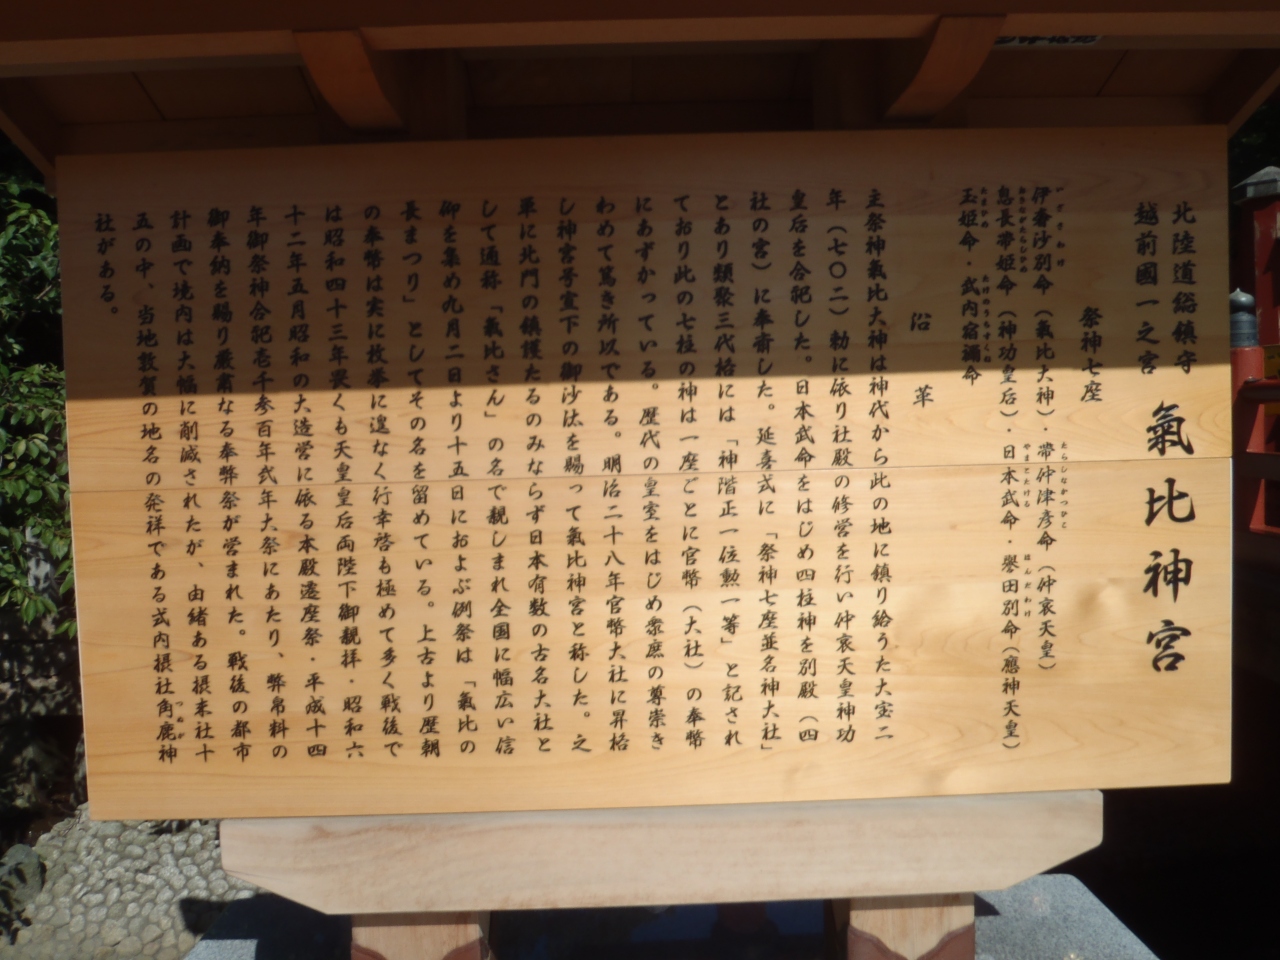 北陸道総鎮守
越前國一之宮
氣比神宮
祭神七座
いざさわけ
伊奢沙別命（氣比大神）・帶仲津彦命（仲哀天皇）
たらしなかつひこ
おきながたらしひめ
息長帶姫命（神功皇后）・日本武命・譽田別命（應神天皇）
やまとたける
ほんだわけ
たまひめ
玉姫命・武内宿禰命
たけのうちすくね
沿革
主祭神氣比大神は神代から此の地に鎮り給うた大宝二
年（七〇二）勅に依り社殿の修営を行い仲哀天皇神功
皇后を合祀した。日本武命をはじめ四柱神を別殿（四
社の宮）に奉斎した。延喜式に「祭神七座並名神大社」
とあり類聚三代格には「神階正一位勲一等」と記され
ており此の七柱の神は一座ごとに官幣（大社）の奉幣
にあずかっている。歴代の皇室をはじめ衆庶の尊崇き
わめて篤き所以である。明治二十八年官幣大社に昇格
し神宮号宣下の御沙汰を賜って氣比神宮と称した。之
單に北門の鎮護たるのみならず日本有数の古名大社と
して通称「氣比さん」の名で親しまれ全国に幅広い信
仰を集め九月二日より十五日におよぶ例祭は「氣比の
長まつり」としてその名を留めている。上古より歴朝
の奉幣は実に枚挙に遑なく行幸啓も極めて多く戦後で
は昭和四十三年畏くも天皇皇后両陛下御親拝・昭和六
十二年五月昭和の大造営に依る本殿遷座祭・平成十四
年御祭神合祀壱千参百年式年大祭にあたり、幣帛料の
御奉納を賜り厳粛なる奉幣祭が営まれた。戦後の都市
計画で境内は大幅に削減されたが、由緒ある摂末社十
五の中、当地敦賀の地名の発祥である式内摂社角鹿神
つぬが
社がある。